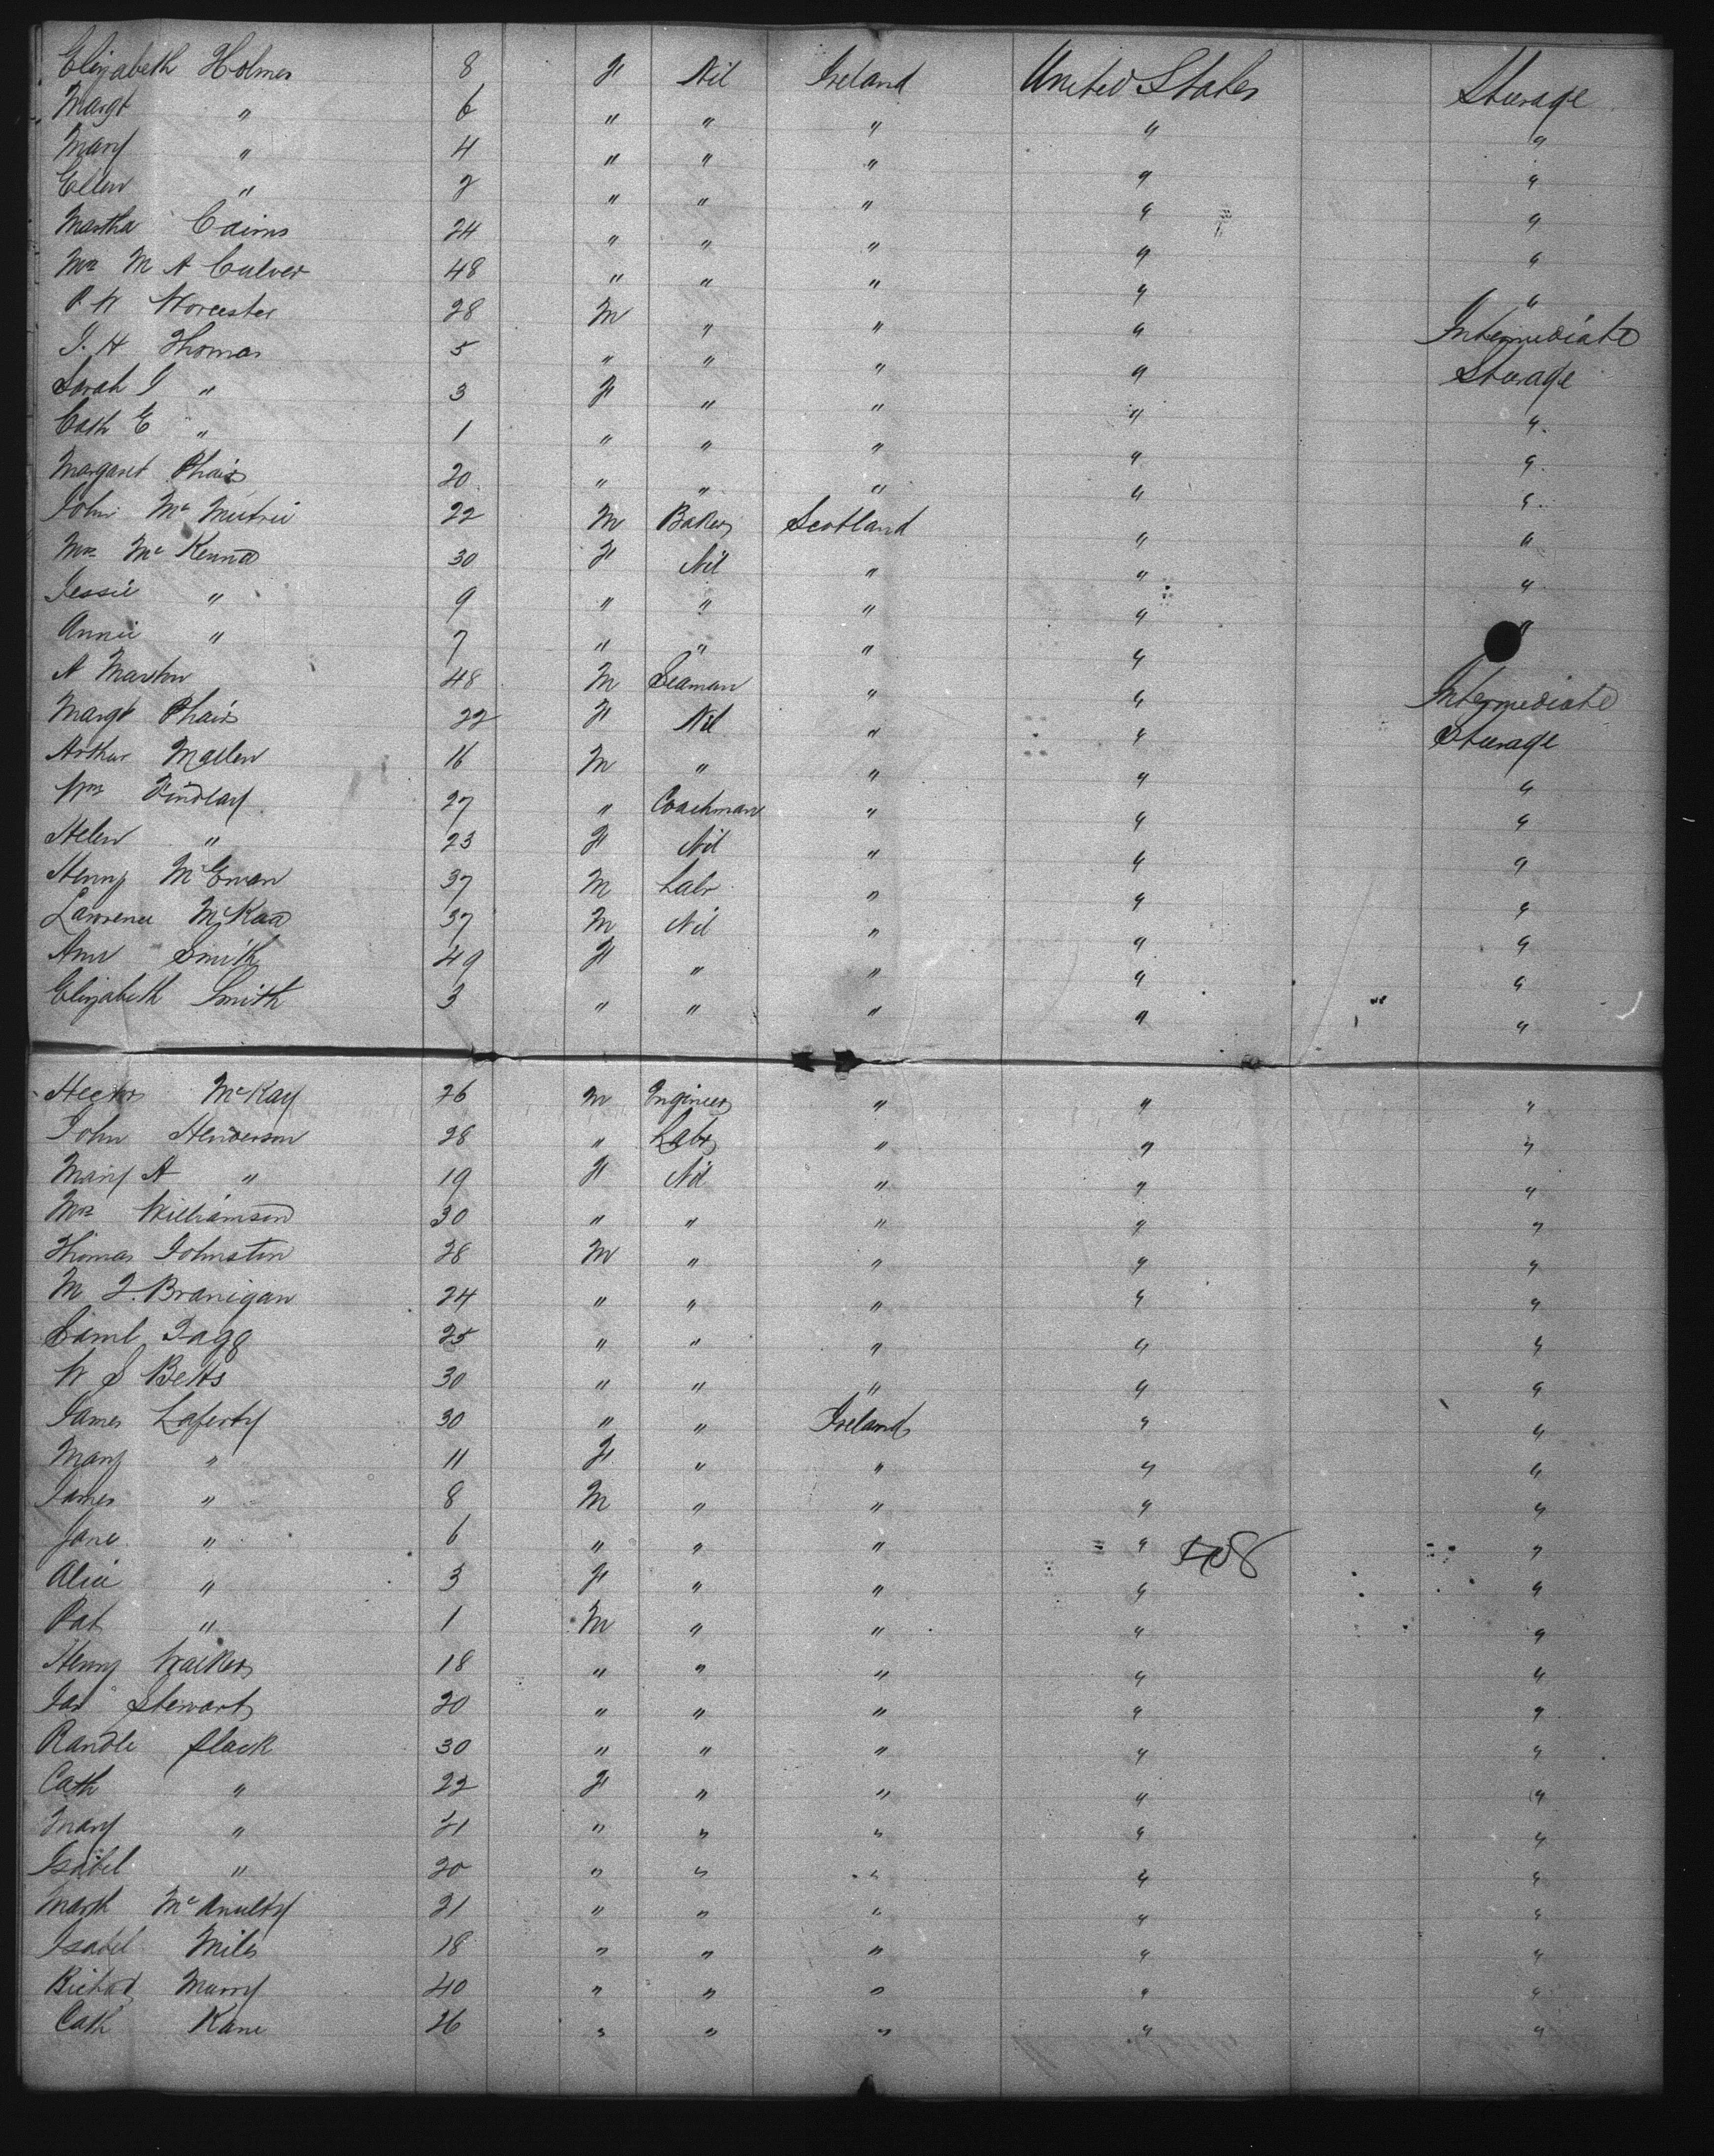 Elizabeth Holmes 8 F Nil Ireland United States Steerage
Margt " 6 " " " " "
Mary " 4 " " " " "
Ellen " 2 " " " " "
Martha Cairns 24 " " " " "
Mrs M A Culver 48 " " " " "
R W Worcester 28 M " " " Intermediate
J. H Thomas 5 " " " " Steerage
Sarah J " 3 F " " " "
Cath E " 1 " " " " "
Margaret Phair 20 " " " " "
John Mc 22 M Baker Scotland " "
Mrs McKenna 30 F Nil " " "
Jessie " 9 " " " " "
Annie " 7 " " " " "
A Martin 48 M Seaman " " Intermediate
Margt Phair 22 F Nil " " Steerage
Arthur 16 M " " " "
Wm Findlay 27 " Coachman " " "
Helen " 23 F Nil " " "
Henry McEwan 37 M Labr " " "
Lawrence 37 M Nil " " "
Ann Smith 49 F " " " "
Elizabeth Smith 3 " " " " "
Hector McKay 26 M Engineer " " "
John Henderson 28 " Labr " " "
Mary A " 19 F Nil " " "
Mrs Williamson 30 " " " " "
Thomas Johnston 28 M " " " "
M J. Branigan 24 " " " " "
Saml Tagg 25 " " " " "
W S Betts 30 " " " " "
James Laferty 30 " " Ireland " "
Mary " 11 F " " " "
James " 8 M " " " "
Jane " 6 " " " " "
Alice " 3 F " " " "
Pat " 1 M " " " "
Henry Walker 18 " " " " "
Jas Stewart 20 " " " " "
Randle Slack 30 " " " " "
Cath " 22 F " " " "
Mary " 21 " " " " "
Isabel " 20 " " " " "
Margt McAnulty 21 " " " " "
Isabel Miles 18 " " " " "
Murry 40 " " " " "
Cath Kane 26 " " " " "